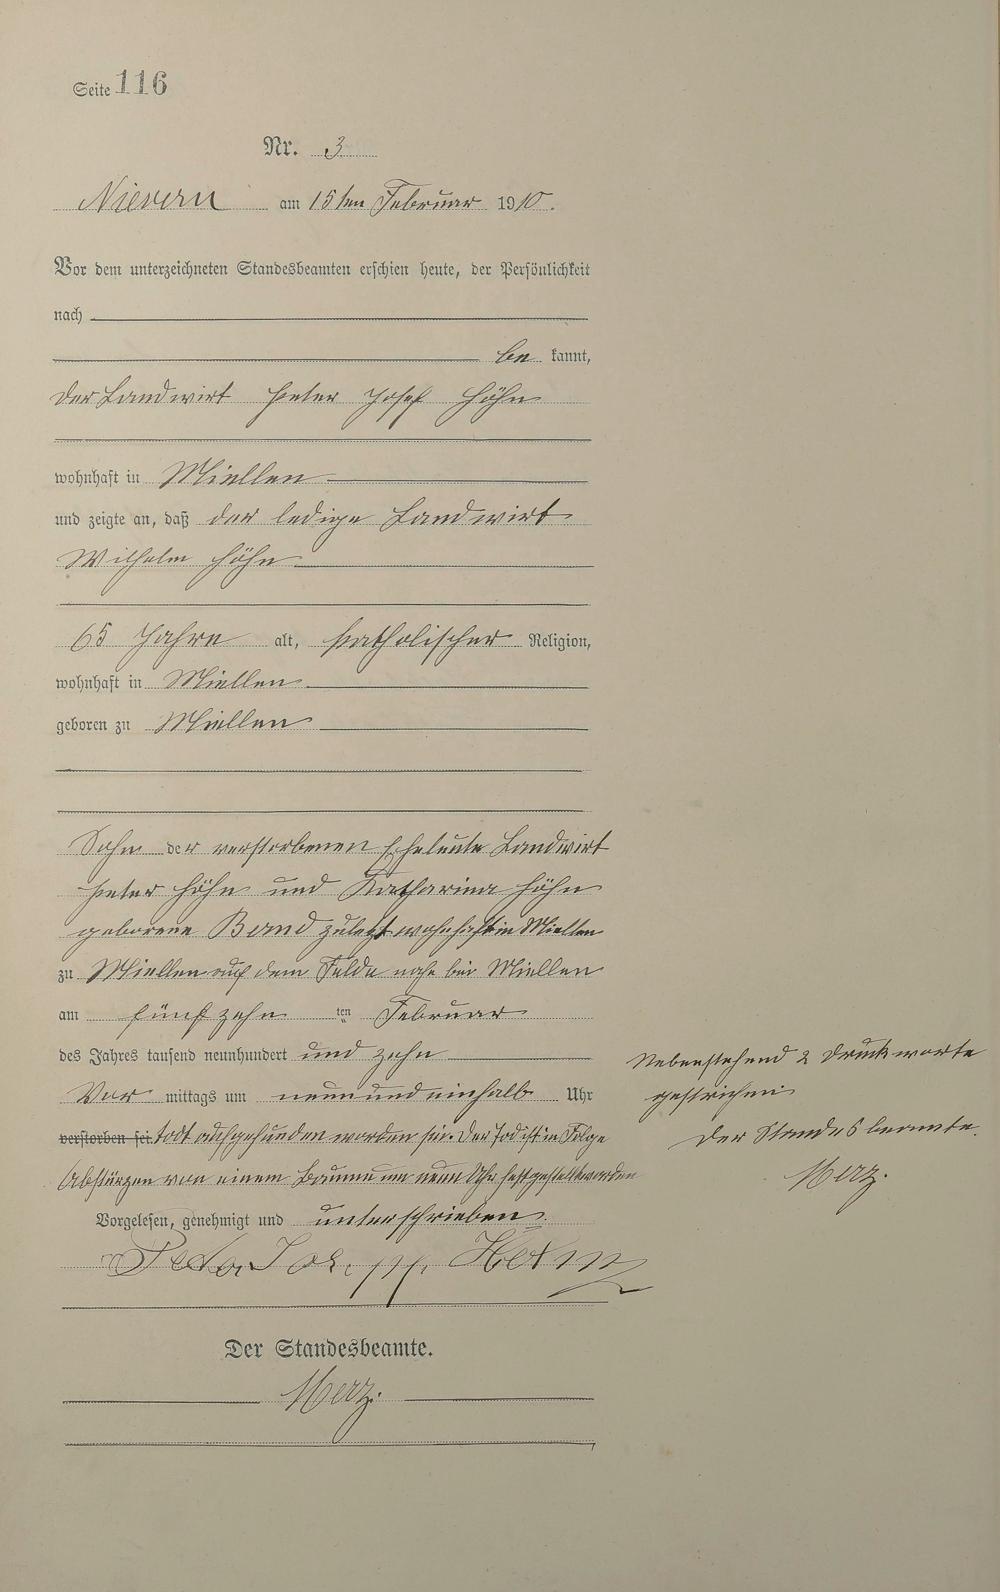 Seite 116
Nr. 3
Nievern am 15ten Februar 1910.
Vor dem unterzeichneten Standesbeamten erschien heute, der Persönlichkeit
nach
be kannt,
der Landwirt Peter Josef Höhn
wohnhaft in Miellen
und zeigte an, daß der ledige Landwirt
Wilhelm Höhn
65 Jahre alt, katholischer Religion,
wohnhaft in Miellen
geboren zu Miellen
Sohn der verstorbenen Eheleute Landwirt
Peter Höhn und Katharina Höhn
geborene Band zuletzt wohnhaft in Miellen
zu Miellen auf dem Felde nahe bei Miellen
am fünfzehn ten Februar
des Jahres tausend neunhundert und zehn
Vor mittags um neun und einhalb Uhr
verstorben sei. todt aufgefunden worden sei. Der Tod ist in Folge
Abstürzen von einem Baume um neun Uhr festgestellt worden
Vorgelesen, genehmigt und unterschrieben.
Peter Josepf Hoehn
Der Standesbeamte.
Merz.
Nebenstehend 2 Druckworte
gestrichen
Der Standesbeamte.
Merz.